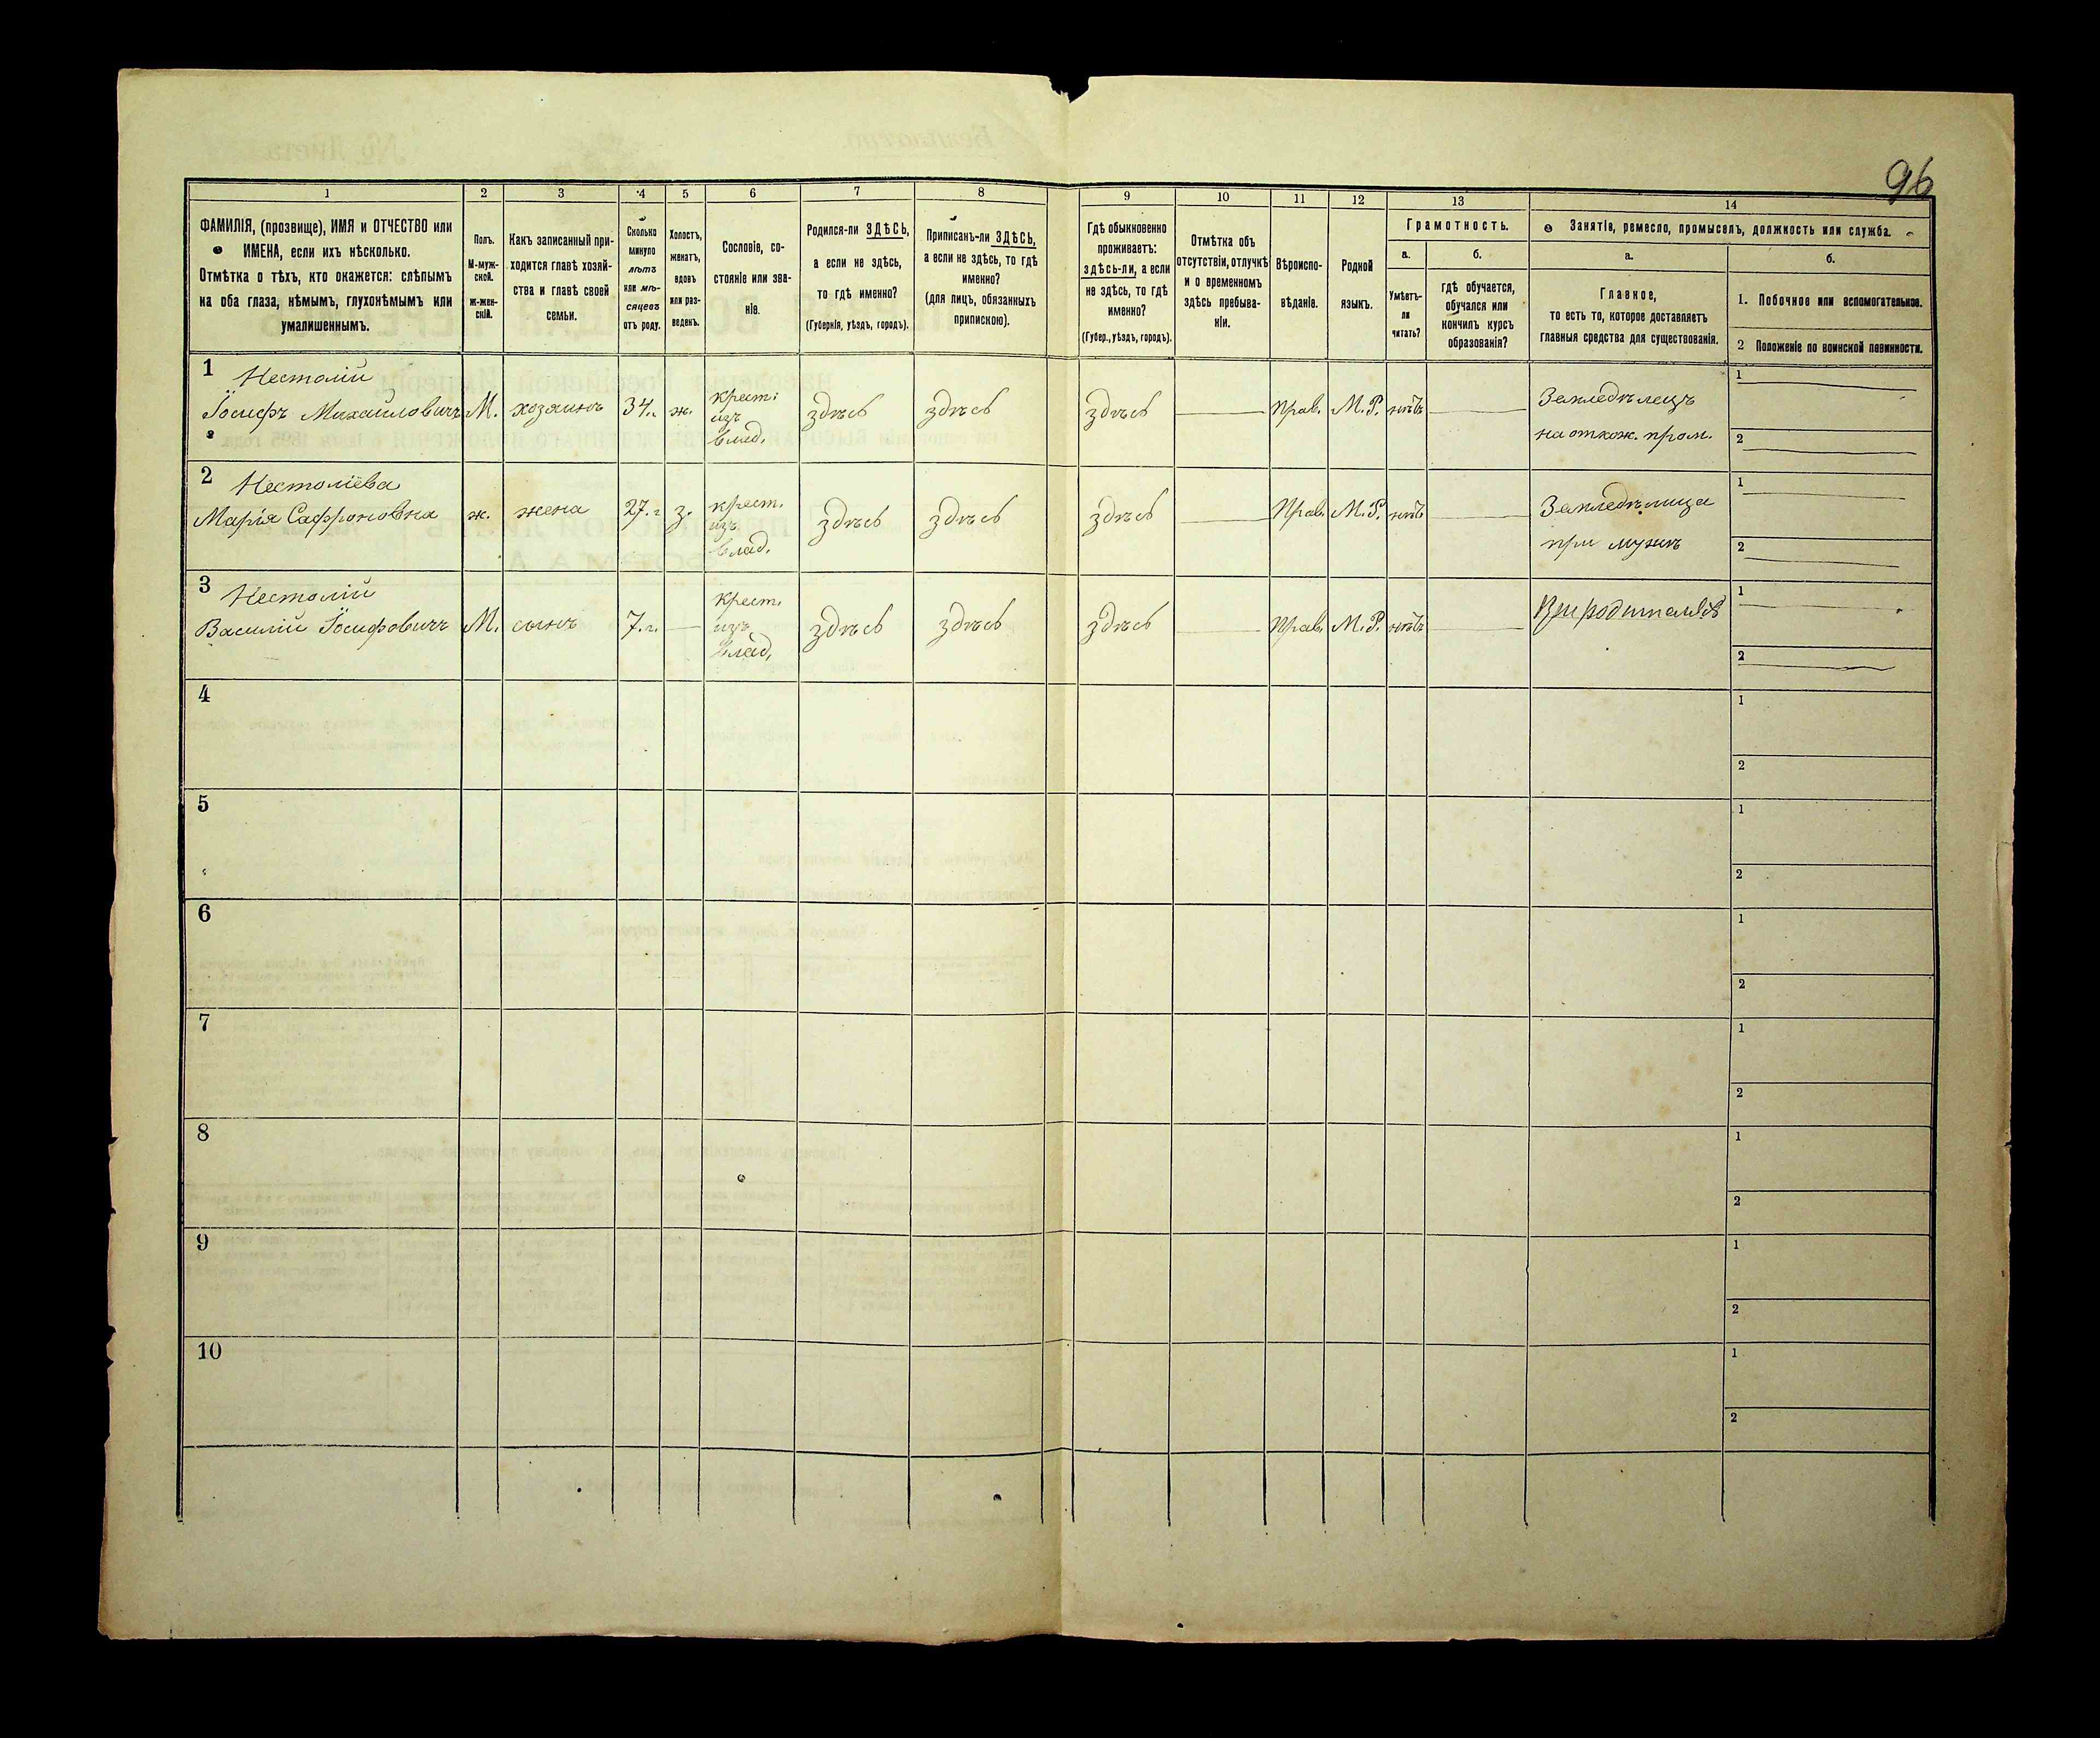 96
1 2 3 4 5 6 7 8 9 10 11 12 13 14
ФАМИЛІЯ, (прозвище), ИМЯ и ОТЧЕСТВО или
ИМЕНА, если ихъ нѣсколько.
Отмѣтка о тѣхъ, кто окажется: слѣпымъ
на оба глаза, нѣмымъ, глухонѣмымъ или
умалишеннымъ.
Полъ.
М-муж-
ской.
Ж-жен-
скій.
Какъ записанный при-
ходится главѣ хозяй-
ства и главѣ своей
семьи.
Сколько
минуло
лѣтъ
или мѣ-
сяцевъ
отъ роду.
Холостъ,
женатъ,
вдовъ
или раз-
веденъ.
Сословіе, со-
стояніе или зва-
ніе.
Родился-ли ЗДѢСЬ,
а если не здѣсь,
то гдѣ именно?
(Губернія, уѣздъ, городъ).
Приписанъ-ли ЗДѢСЬ,
а если не здѣсь, то гдѣ
именно?
(для лицъ, обязанныхъ
припискою).
Гдѣ обыкновенно
проживаетъ:
здѣсь-ли, а если
не здѣсь, то гдѣ
именно?
(Губер., уѣздъ, городъ).
Отмѣтка объ
отсутствіи, отлучкѣ
и о временномъ
здѣсь пребыва-
ніи.
Вѣроиспо-
вѣданіе.
Родной
языкъ.
Грамотность.
а.
Умѣетъ-
ли
читать?
б.
гдѣ обучается,
обучался или
кончилъ курсъ
образованія?
Занятіе, ремесло, промыселъ, должность или служба.
а.
Главное,
то есть то, которое доставляетъ
главныя средства для существованія.
б.
1. Побочное или вспомогательное.
2 Положеніе по воинской повинности.
1 Нестолій
Іосифъ Михайловичъ М. хозяинъ 34.г. ж. крест. изъ влад. здѣсь здѣсь здѣсь прав. М.Р. нѣтъ Земледѣлецъ
на отхож. пром.
1
2
2 Нестоліева
Марія Сафроновна ж. жена 27.г з. крест. изъ влад. здѣсь здѣсь здѣсь Прав. М.Р. нѣтъ Земледѣлица
при мужѣ
1
2
3 Нестолій
Василій Іосифовичъ М. сынъ 7.г. крест. изъ влад. здѣсь здѣсь здѣсь Прав. М.Р. нѣтъ При родителяхъ
1
2
4
1
2
5
1
2
6
1
2
7
1
2
8
1
2
9
1
2
10
1
2